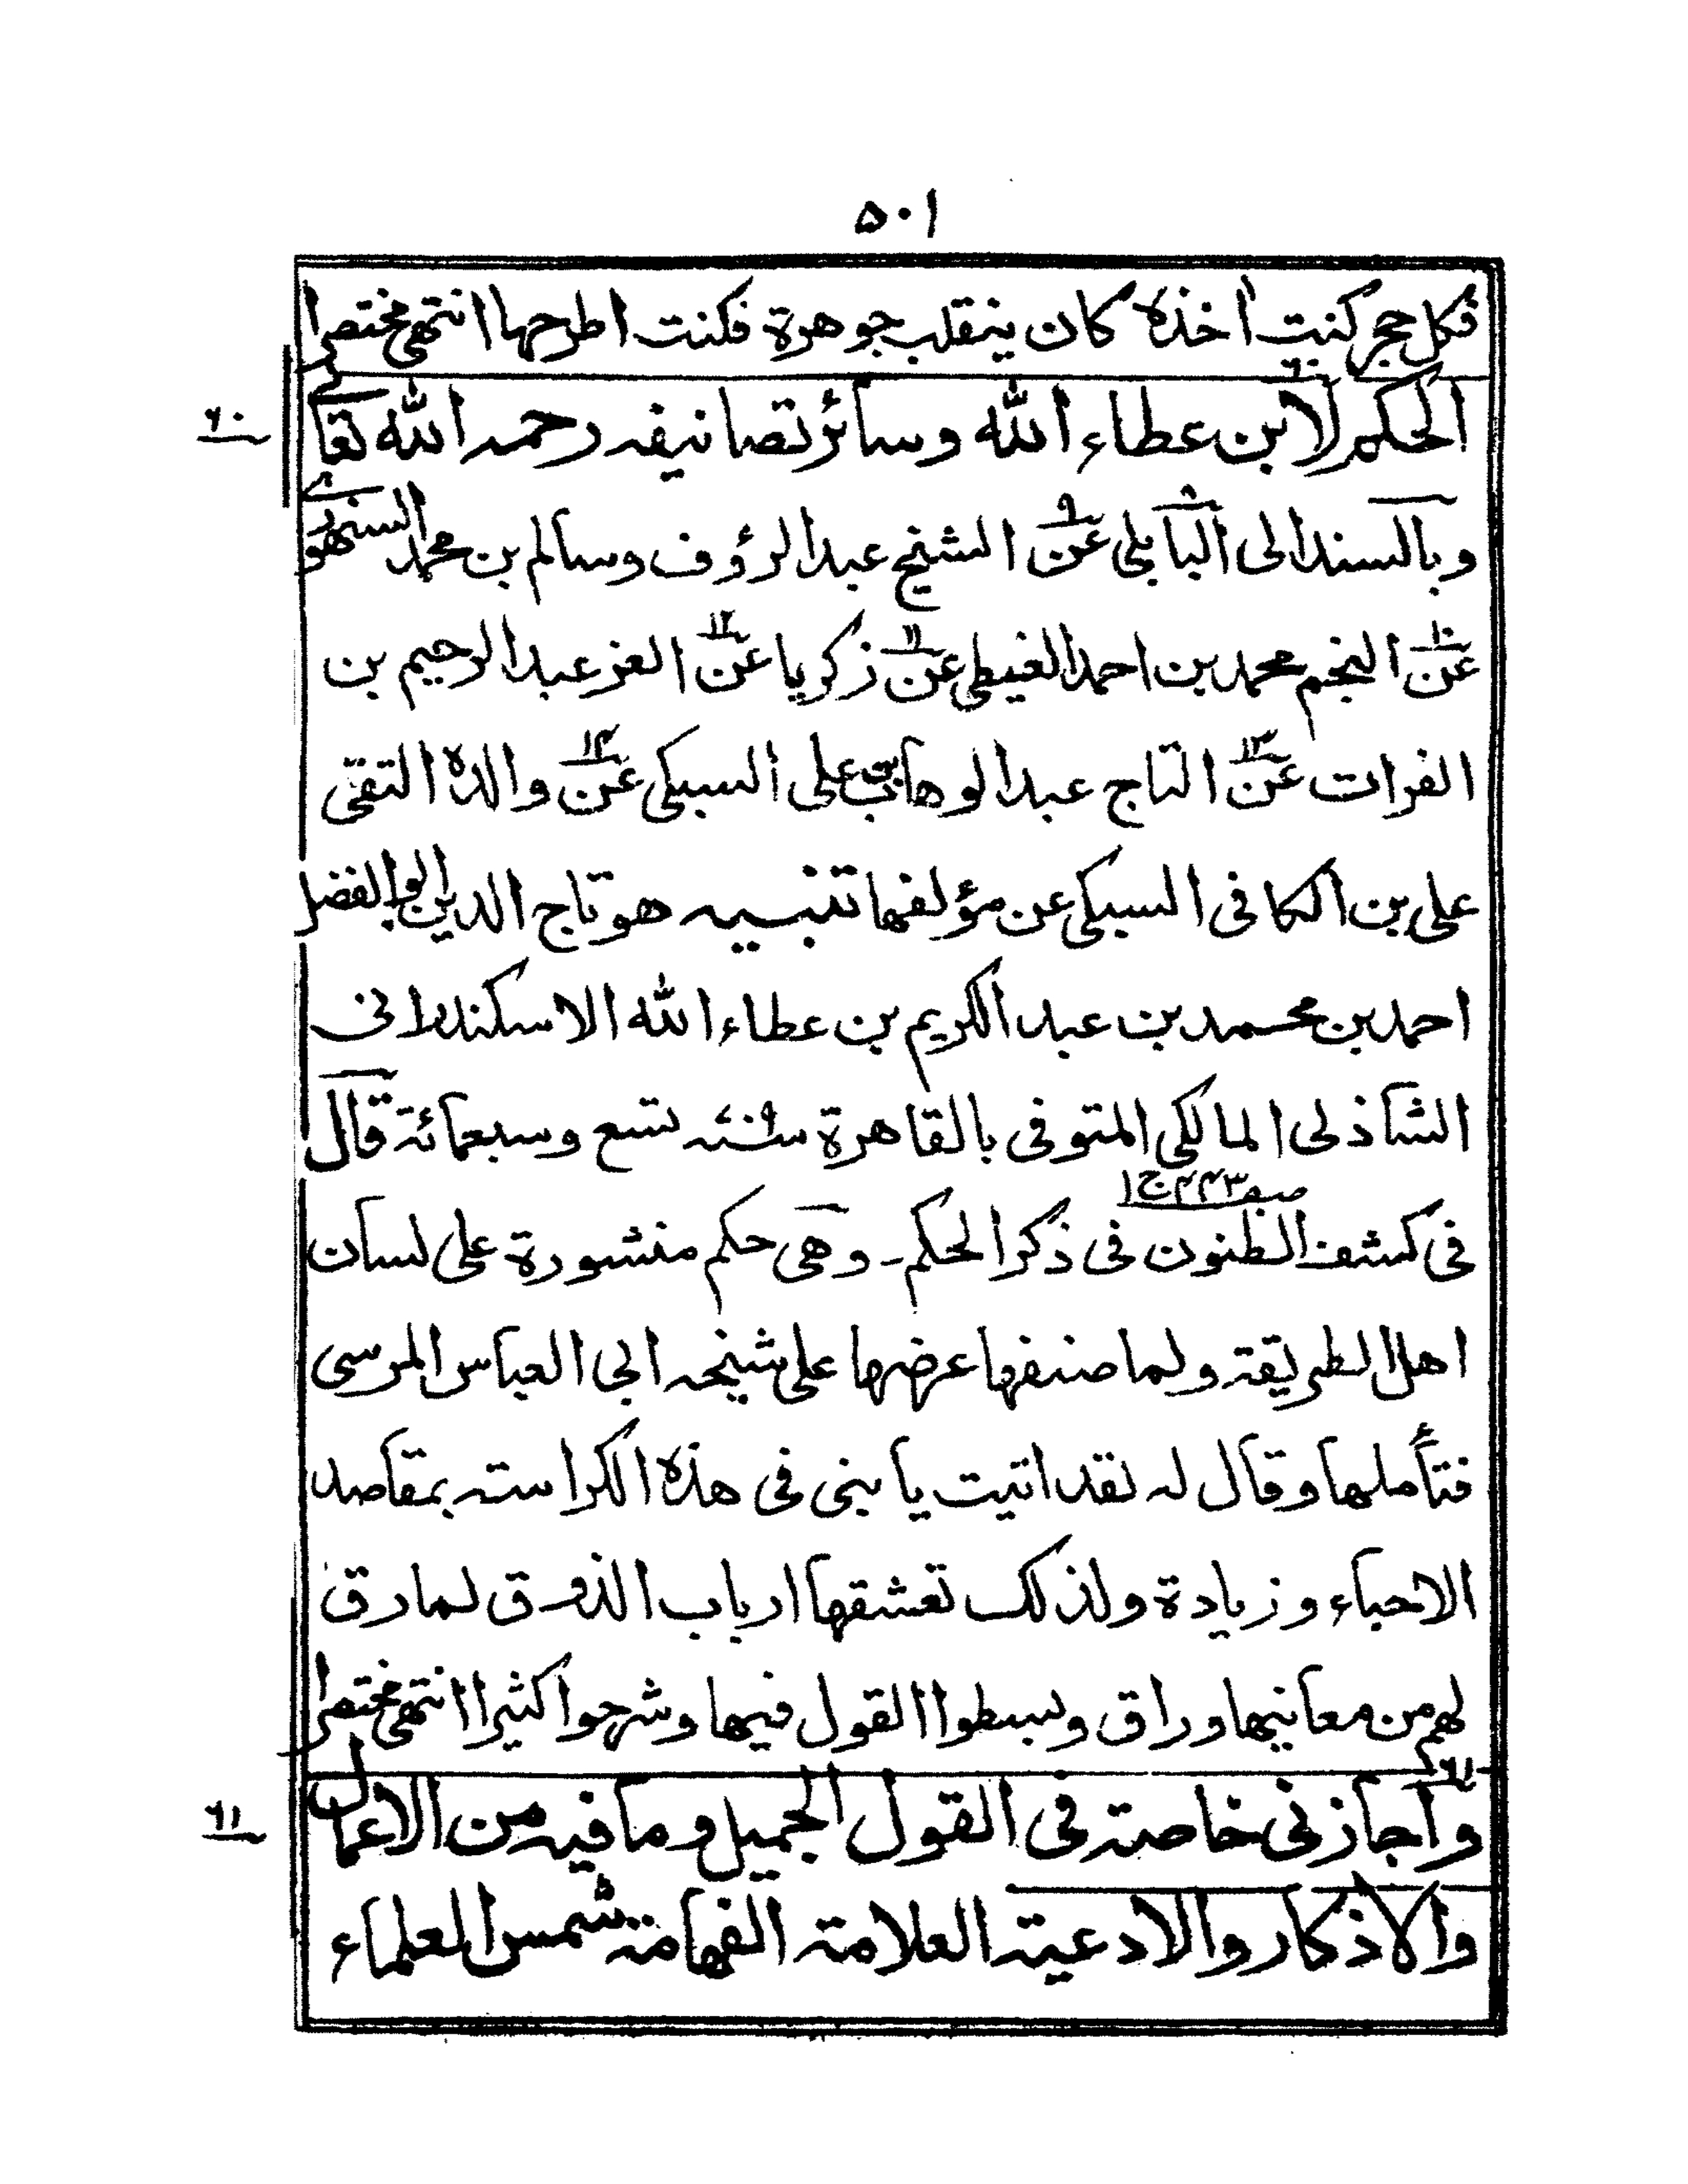 ۵۰۱
فكل حجر كنت اخذه كان ينقلب جوهرة فكنت اطرحها انتهى مختصرا
۶۰
۶۰
الحكم لابن عطاء الله وسائر تصانيفه رحمه الله تعالے
وبالسند الى البابلى۸ عن۹ الشيخ عبد الرؤف وسالم بن محمد السنهورے
عن۱۰ النجم محمد بن احمد الغيطى عن۱۱ زكريا عن۱۲ العز عبد الرحيم بن
الفرات عن۱۳ التاج عبد الوهاب بن على السبكى عن۱۴ والده التقى
على بن الكافى السبكى عن مؤلفها تنبيه هو تاج الدين ابو الفضل
احمد بن محمد بن عبد الكريم بن عطاء الله الاسكندرانى
الشاذلى المالكى المتوفى بالقاهرة سنة ۷۰۹ تسع وسبعمائة قال
صفـ ۴۴۳ ج ۱
فى كشف الظنون فى ذكر الحكم۔ وهى حكم منشورة على لسان
اهل الطريقة ولما صنفها عرضها على شيخه ابى العباس المرسى
فتأملها وقال له لقد اتيت يا بنى فى هذه الكراسة بمقاصد
الاحياء وزيادة ولذلك تعشقها ارباب الذوق لما رق
لهم من معانيها وراق وبسطوا القول فيها وشرحوا كثيرا انتهى مختصرا
۶۱
۶۱
واجازنى خاصة فى القول الجميل وما فيه من الاعمال
والاذكار والادعية العلامة الفهامة شمس العلماء